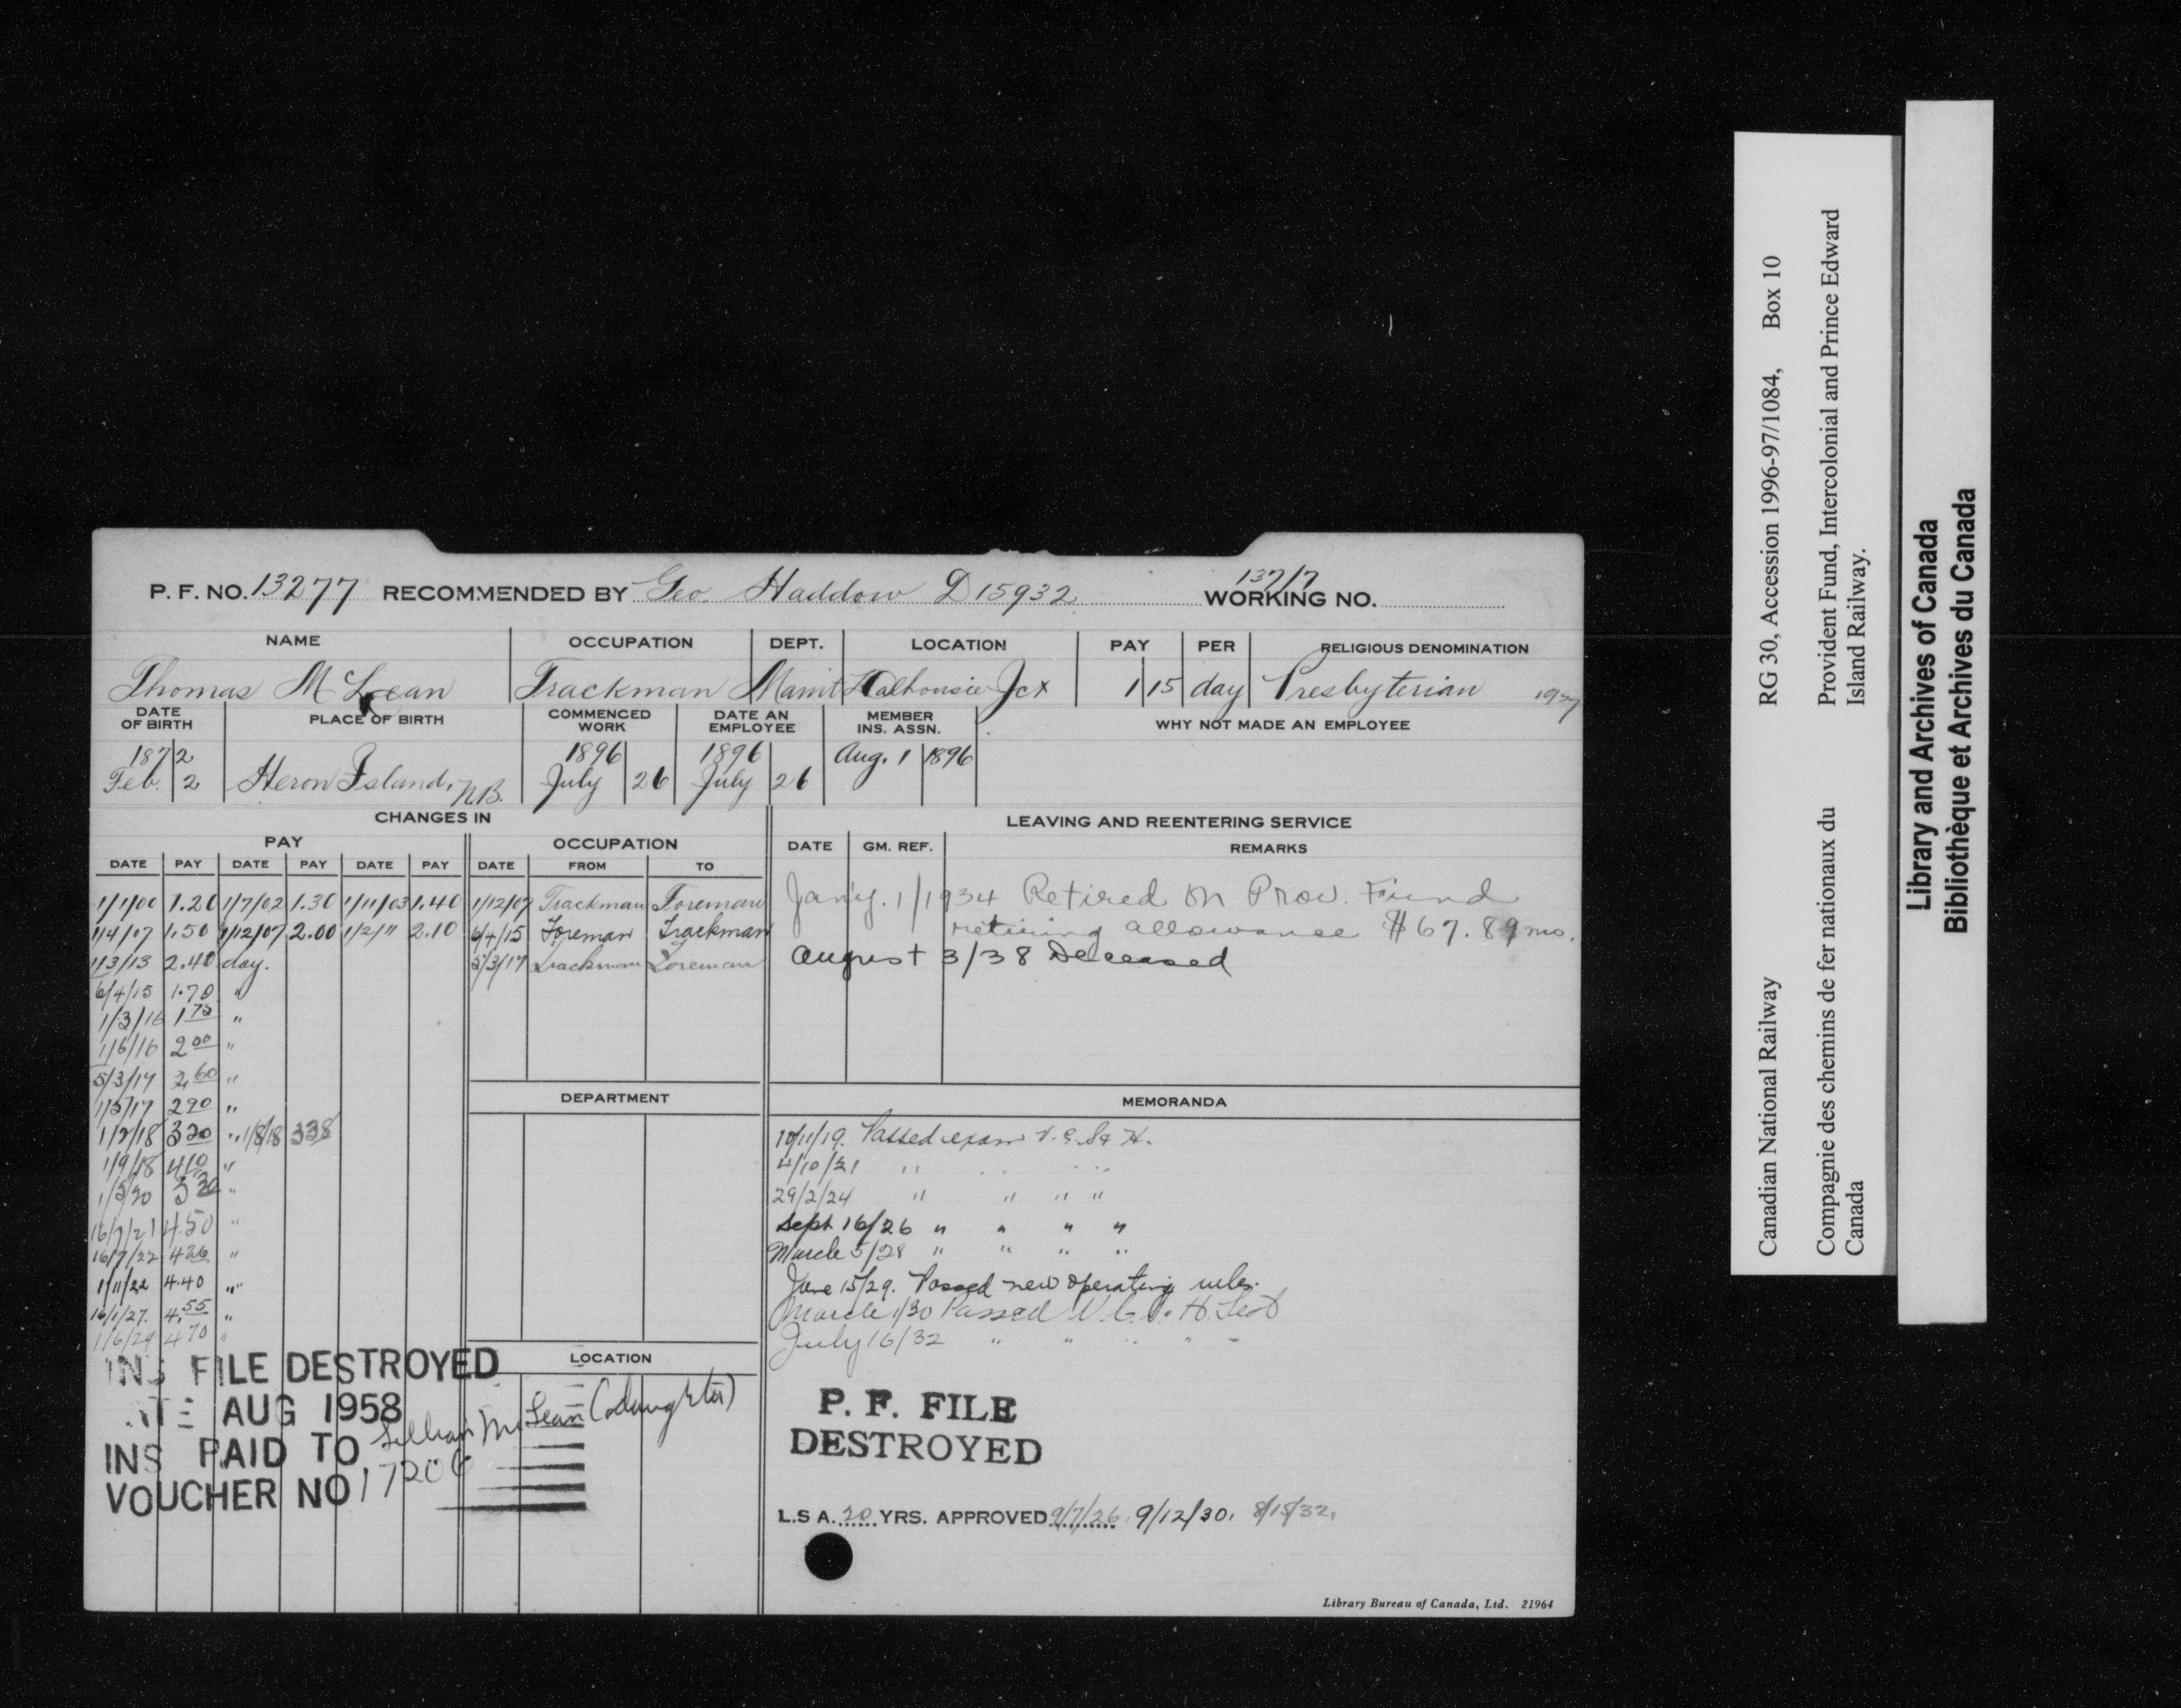 137/7
P. F. NO. 13277 RECOMMENDED BY Geo Haddow D15932 WORKING NO.
NAME OCCUPATION DEPT. LOCATION PAY PER RELIGIOUS DENOMINATION
Thomas McLean Trackman Maint Dalhousie Jct 1 15 day Presbyterian
DATE OF BIRTH PLACE OF BIRTH COMMENCED WORK DATE AN EMPLOYEE MEMBER INS. ASSN. WHY NOT MADE AN EMPLOYEE
1872 1896 1896 Aug. 1 1896
Feb. 2 Heron Island, N.B. July 26 July 26
CHANGES IN
PAY OCCUPATION
DATE PAY DATE PAY DATE PAY DATE FROM TO
1/1/00 1.20 1/7/02 1.30 1/11/03 1.40 1/12/07 Trackman Foreman
1/4/07 1.50 1/12/07 2.00 1/2/11 2.10 6/4/15 Foreman Trackman
1/3/13 2.40 day. 5/3/17 Trackman Foreman
6/4/15 1.70 "
1/3/16 1 75 "
1/6/16 2 00 "
5/3/17 2 60 "
1/5/17 2 90 "
1/2/18 3 20 " 1/8/18 338
1/9/18 4 10 "
1/5/20 5 20 "
16/7/21 4.50 "
16/7/22 4 26 "
1/11/22 4.40 "
16/1/27. 4.55 "
1/6/29 4 70 "
DEPARTMENT
LOCATION
INS FILE DESTROYED
ATE AUG 1958
INS PAID TO Lillian McLean (daughter)
VOUCHER NO 17206
LEAVING AND REENTERING SERVICE
DATE GM. REF. REMARKS
Jan'y. 1/1934 Retired on Prov. Fund
retiring allowance $67.89 mo.
August 3/38 Deceased
MEMORANDA
10/11/19. Passed exam V. C. S. & H.
4/10/21 " " " "
29/2/24 " " " "
Sept 16/26 " " " "
March 5/28 " " " "
June 15/29. Passed new operating rules.
March 1/30 Passed V. C. S. H. Test
July 16/32 " " " " "
P. F. FILE
DESTROYED
L.S A. 20 YRS. APPROVED 9/7/26. 9/12/30. 8/15/32.
Library Bureau of Canada, Ltd. 21964
Canadian National Railway RG 30, Accession 1996-97/1084, Box 10
Compagnie des chemins de fer nationaux du Provident Fund, Intercolonial and Prince Edward
Canada Island Railway.
Library and Archives of Canada
Bibliothèque et Archives du Canada